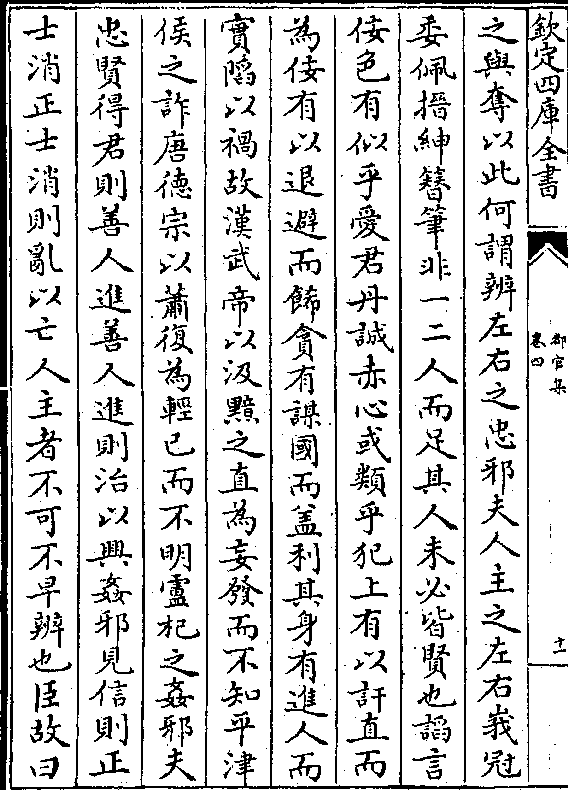 欽定四庫全書
都官集
卷四
十一
之與奪以此何謂辨左右之忠邪夫人主之左右峩冠
委佩搢紳簪筆非一二人而足其人未必皆賢也謟言
佞色有似乎愛君丹誠赤心或類乎犯上有以訐直而
為佞有以退避而飾貪有謀國而盖利其身有進人而
實䧟以禍故漢武帝以汲黯之直為妄發而不知平津
侯之詐唐德宗以蕭復為輕已而不明盧杞之姦邪夫
忠賢得君則善人進善人進則治以興姦邪見信則正
士消正士消則亂以亡人主者不可不早辨也臣故曰